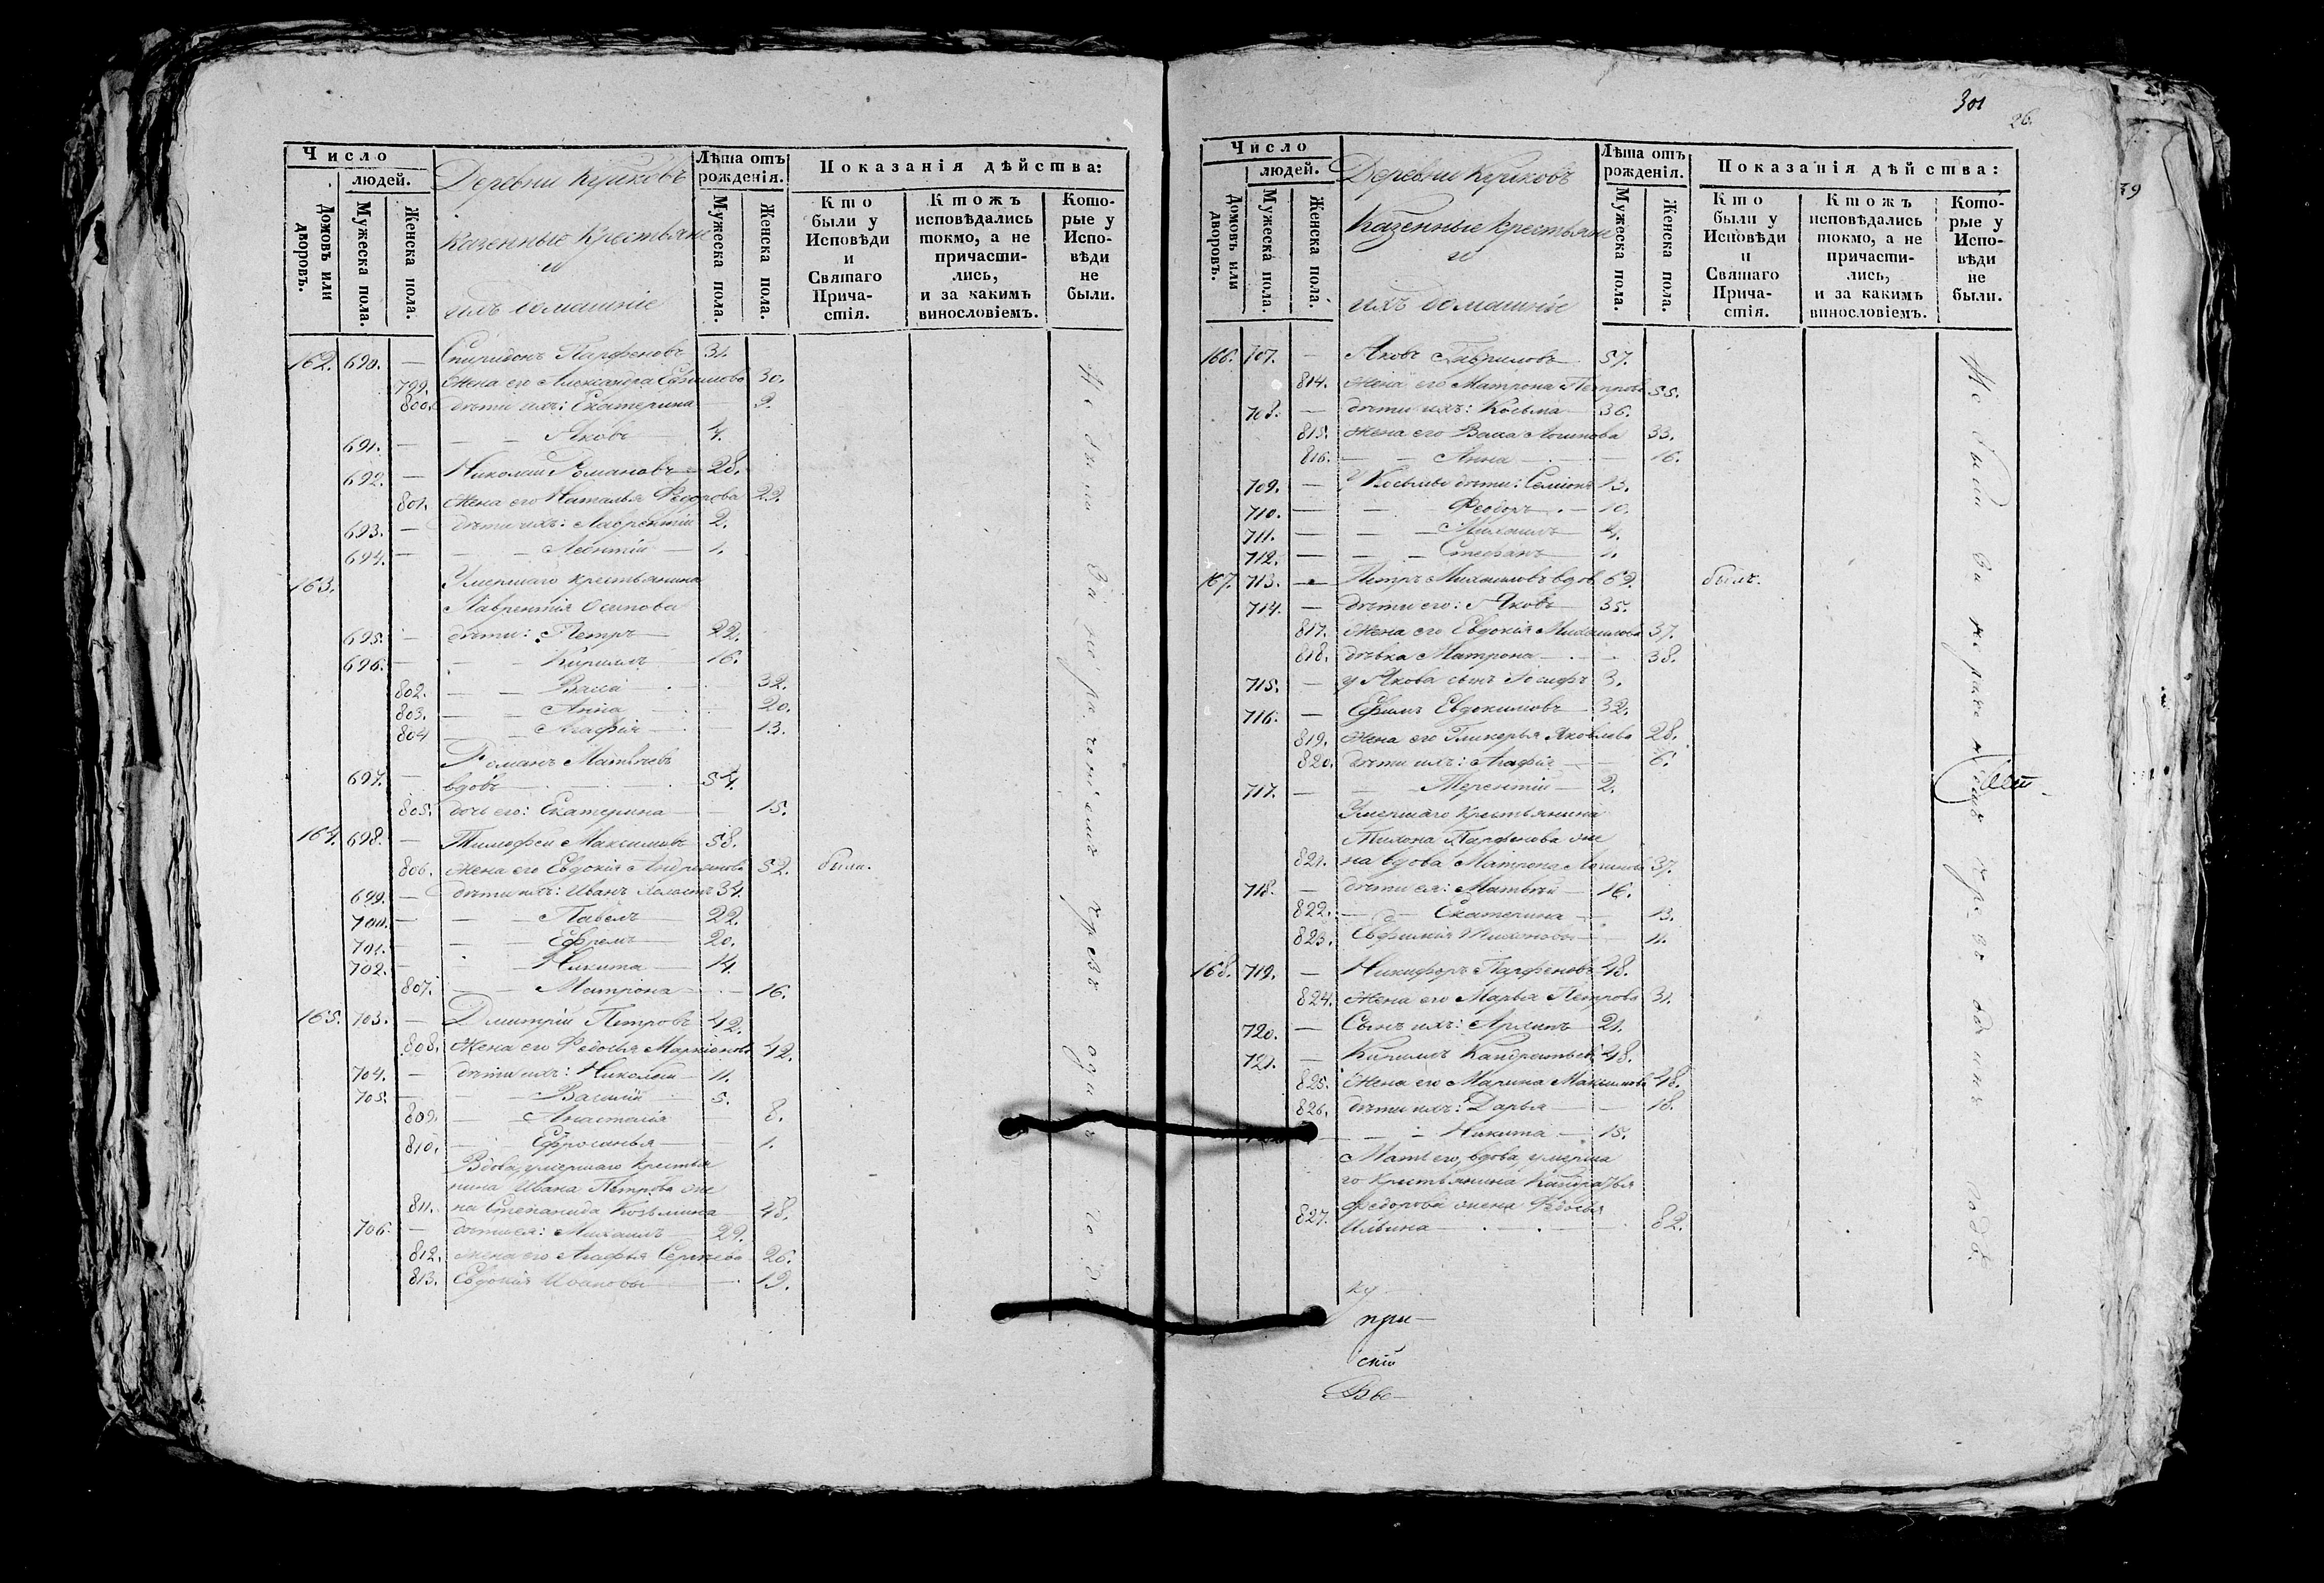 Число
людей.
Домовъ или дворовъ.
Мужеска пола.
Женска пола.
Деревни Куйковъ
Казенные Крестьяне
и
ихъ домашніе
Лѣта отъ рожденія.
Мужеска пола.
Женска пола.
Показанія дѣйства:
Кто были у Исповѣди и Святаго Причастія.
Ктожъ исповѣдались токмо, а не причастились, и за какимъ винословіемъ.
Которые у Исповѣди не были.
162. 690. — Спиридонъ Парфеновъ 31.
799. Жена его Александра 30.
800. дѣти ихъ: Екатерина — 9.
691. — — — Яковъ — 4.
692. — Николай Романовъ — 28.
801. Жена его Наталья Федорова 22.
693. — дѣти ихъ: Лаврентій 2.
694. — — — Леонтій — 1.
163. Умершаго крестьянина
Лаврентія Осипова
695. — дѣти: Петръ — 22.
696. — — — Кирилъ — 16.
802. — — Васса — 32.
803. — — Анна — 20.
804 — — Агафія — 13.
Романъ Матвѣевъ
697. — вдовъ — 54.
805. дочь его: Екатерина — 15.
164. 698. — Тимофей Максимовъ 58.
806. Жена его Евдокія Андреянова 52. была.
699. — дѣти ихъ: Иванъ холостъ 34.
700. — — — Павелъ — 22.
701. — — — Ефремъ — 20.
702. — — — Никита — 14.
807. — — Матрона — 16.
165. 703. — Дмитрій Петровъ 42.
808. Жена его Федосья Маркіанова 42.
704. — дѣти ихъ: Николай — 11.
705. — — — Василій — 5.
809. — — Анастасія 8.
810. — — Ефросинья — 1.
Вдова, умершаго крестья
нина Ивана Петрова же
811. на Степанида Козьмина 48.
706. — дѣти ея: Михаилъ — 29.
812. жена его Агафья Сергѣева 26.
813. Евдокія Иванова — 19.
Не были за нерачениемъ чрезъ одинъ годъ
301
26.
39
Число
людей.
Домовъ или дворовъ.
Мужеска пола.
Женска пола.
Деревни Куйковъ
Казенные крестьяне
и
ихъ домашніе
Лѣта отъ рожденія.
Мужеска пола.
Женска пола.
Показанія дѣйства:
Кто были у Исповѣди и Святаго Причастія.
Ктожъ исповѣдались токмо, а не причастились, и за какимъ винословіемъ.
Которые у Исповѣди не были.
166. 707. — Яковъ Гавриловъ 57.
814. Жена его Матрона Петрова 55.
708. — дѣти ихъ: Косьма — 36.
815. жена его Васса Логинова 33.
816. — — Анна — 16.
709. — У Косьмы дѣти: Семіонъ 13.
710. — — — Феодоръ — 10.
711. — — — Михаилъ — 4.
712. — — — Стефанъ — 1.
167. 713. — Петръ Михаиловъ вдов. 69. былъ.
714. — дѣти его: Яковъ — 35.
817. жена его Евдокія Михаилова 37.
818. дѣвка Матрона — 38.
715. — у Якова сынъ Іосифъ 3.
716. — Ефимъ Евдокимовъ 32.
819. Жена его Гликерья Яковлева 28.
820. дѣти ихъ: Агафія — 6.
717. — — — Терентій — 2.
Умершаго Крестьянина
Тихона Парфенова же
821. на вдова Матрона Логинова 37.
718. — дѣти ея: Матвѣй — 16.
822. — — Екатерина — 13.
823. Евфимія Тихонова — 11.
168. 719. — Никифоръ Парфеновъ 48.
824. Жена его Марья Петрова 31.
720. — Сынъ ихъ: Архипъ 21.
721. — Кирилъ Кандратьевъ 48.
825. Жена его Марина Максимова 48.
826. дѣти ихъ: Дарья — 18.
— — Никита — 15.
Мать его, вдова умерша
го крестьянина Кандратья
Федорова жена Федосья
827. Ильина — 82.
Не были за нерачениемъ чрезъ одинъ годъ.
ку
при—
скій
Вве—